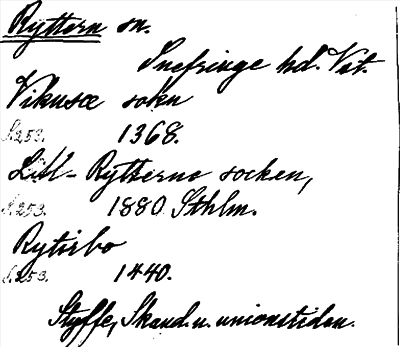 Ryttern sn.
Snefringe hd. Vst.
Vikusæ sokn
S.253. 1368.
Litl-Rytterne socken,
S.253. 1880 Sthlm.
Rytirbo
S.253. 1440.
Styffe, Skand. u. unionstiden.